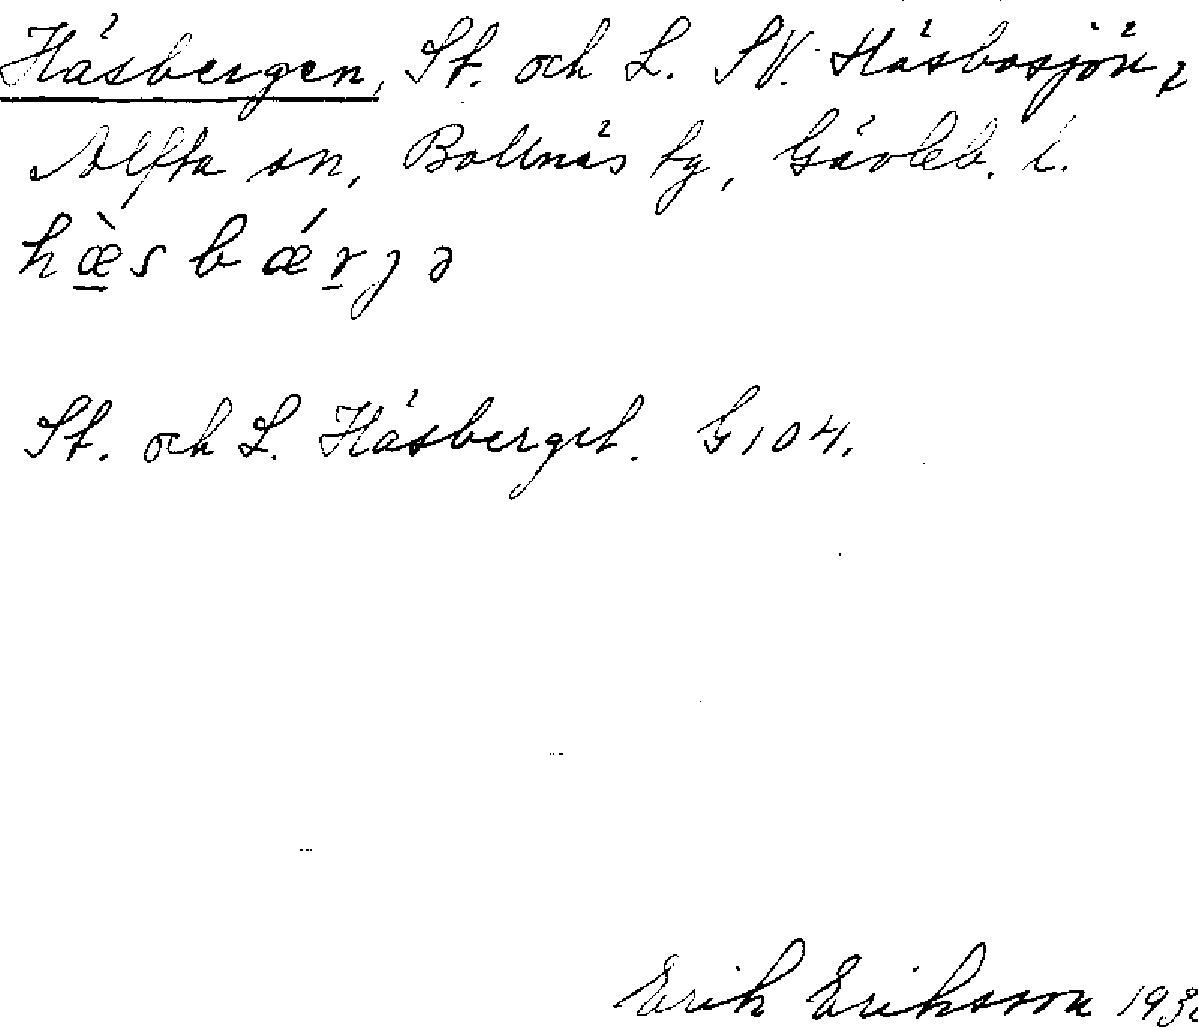 Häsbergen, St. och L. SV. Häsbosjön,
Alfta sn, Bollnäs tg, Gävleb. l.
hæ̠̀sbǽr̠jə
St. och L. Häsberget. G 104.
Erik Eriksson